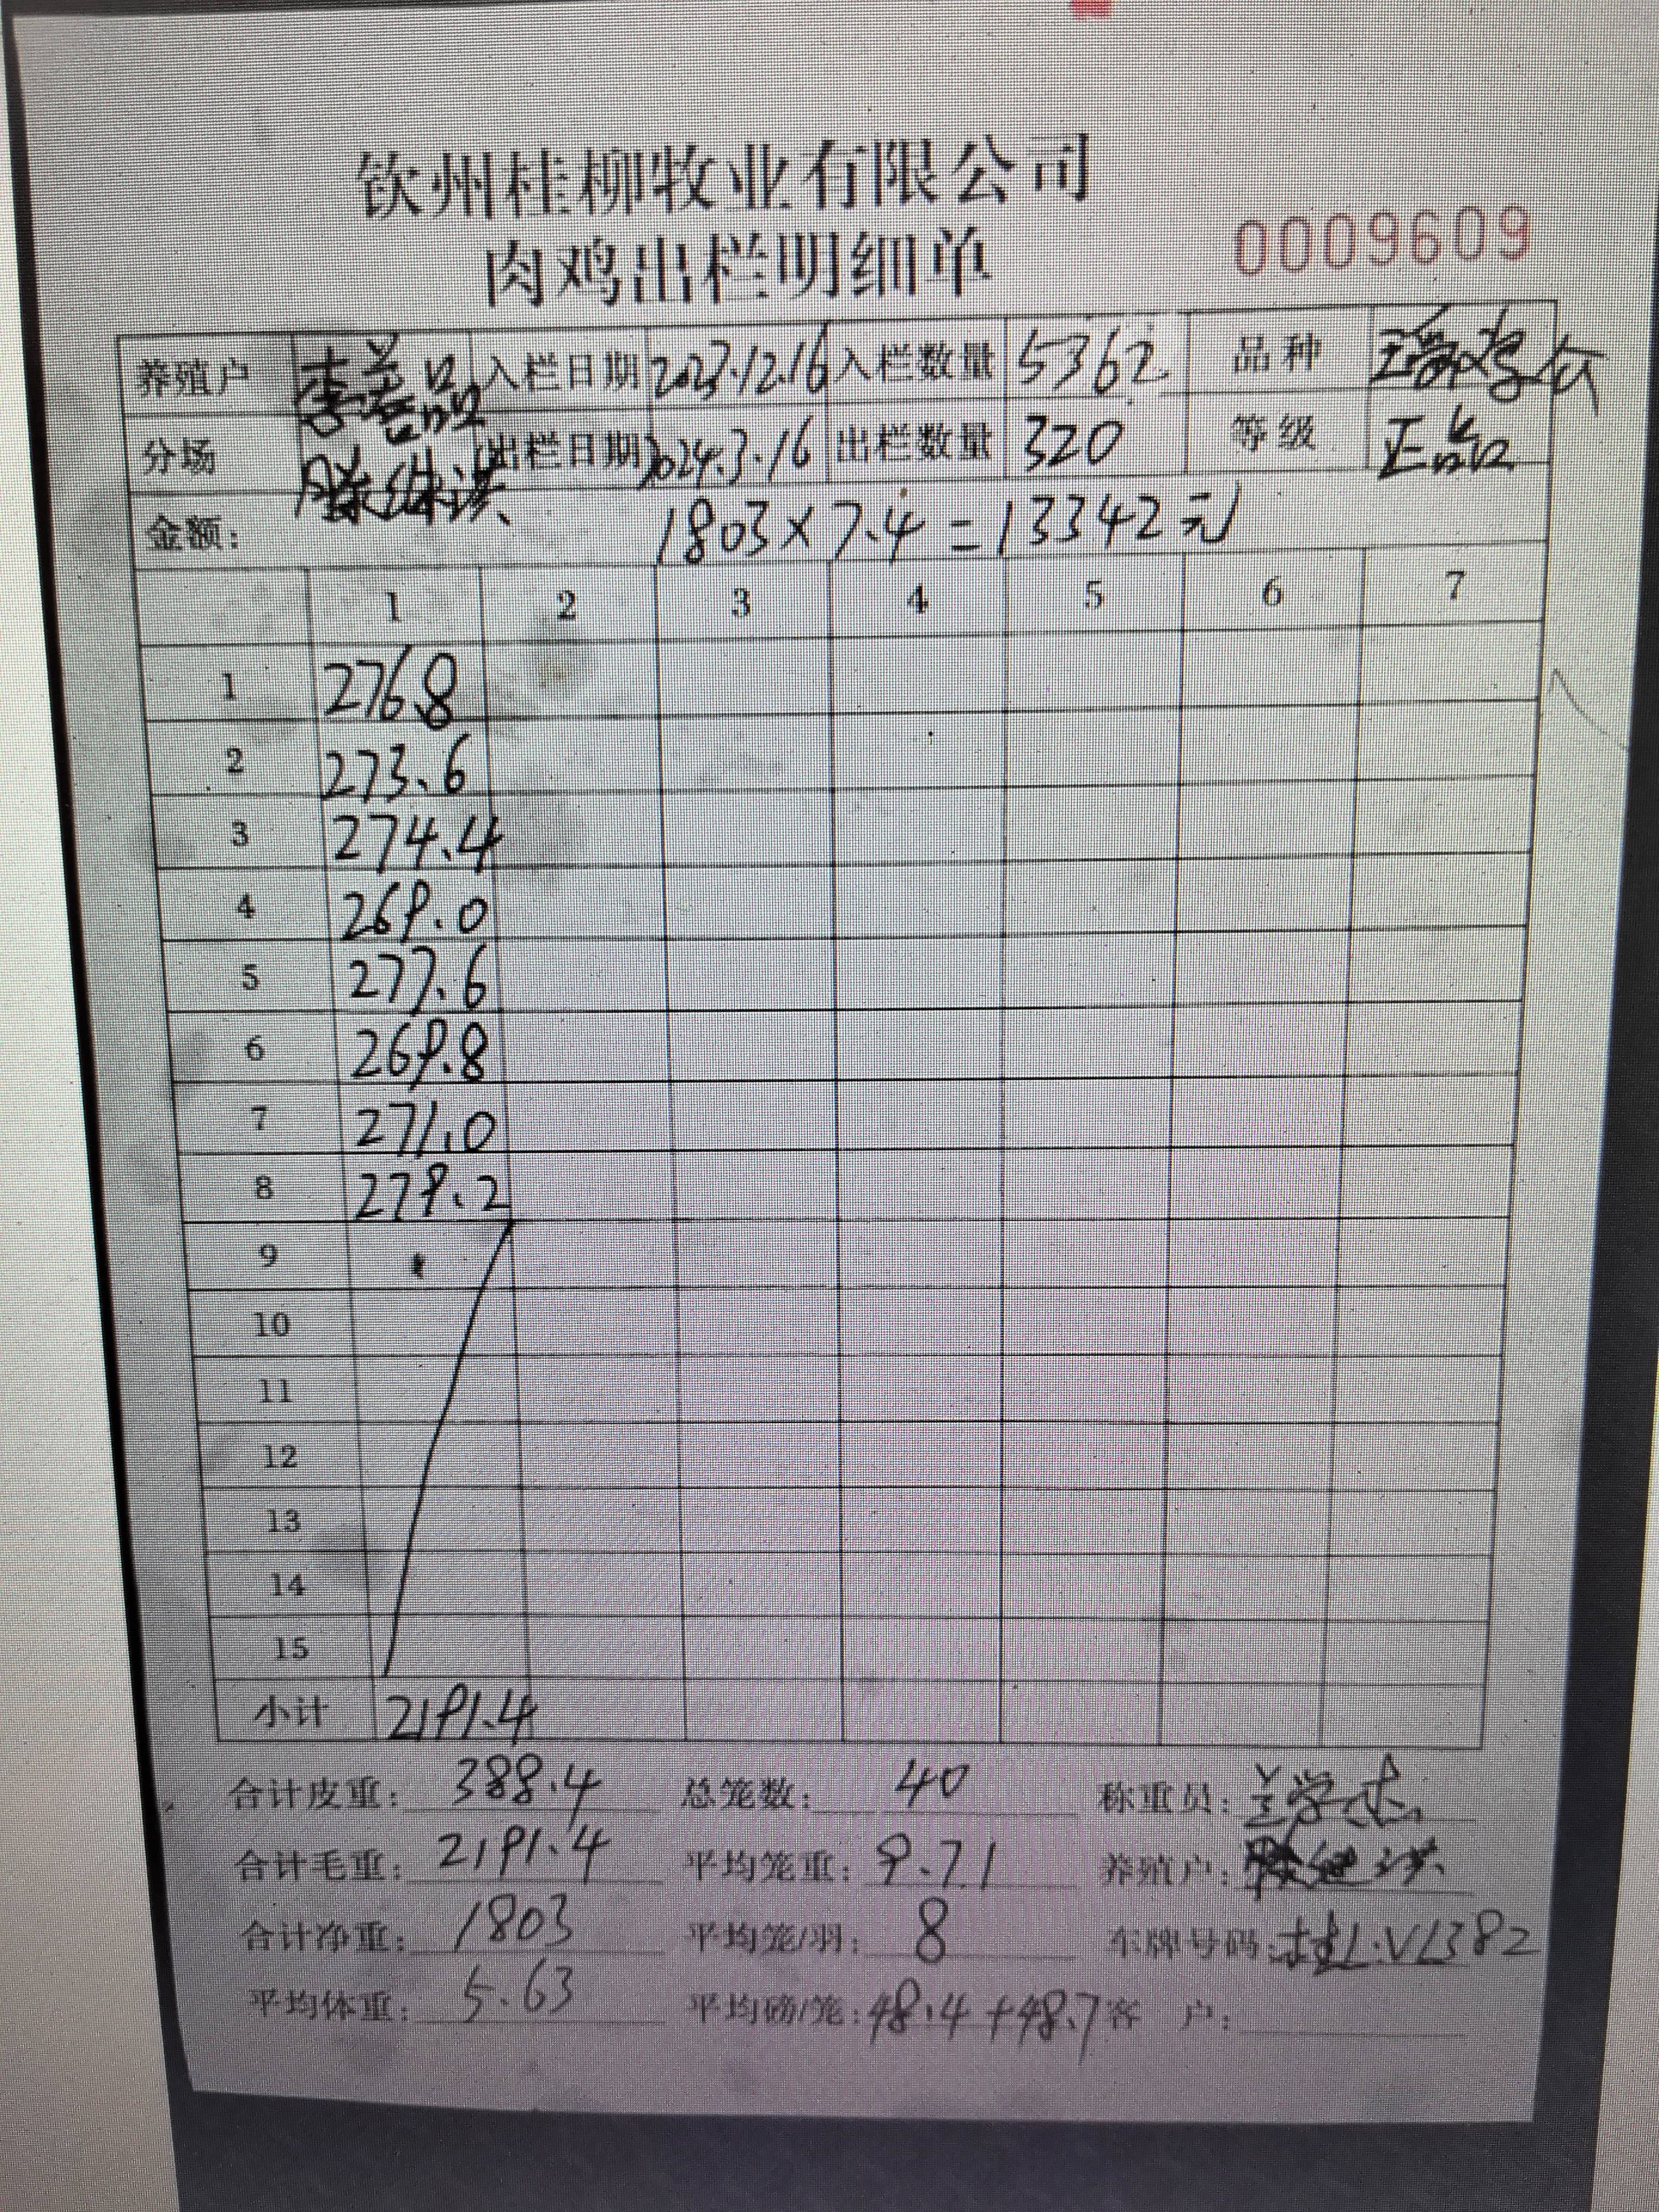 钦州桂柳牧业有限公司
肉鸡出栏明细单 0009609
养殖户 入栏日期 2023.12.16 入栏数量 5362 品种
分场 出栏日期 2024.3.16 出栏数量 320 等级 正品
金额: 1803×7.4=13342元
1 2 3 4 5 6 7
1 276.8
2 273.6
3 274.4
4 269.0
5 277.6
6 269.8
7 271.0
8 279.2
9
10
11
12
13
14
15
小计 2191.4
合计皮重: 388.4 总笼数: 40 称重员:
合计毛重: 2191.4 平均笼重: 9.71 养殖户:
合计净重: 1803 平均笼/羽: 8 车牌号码:
平均体重: 5.63 平均磅/笼: 48.4+48.7 客 户: